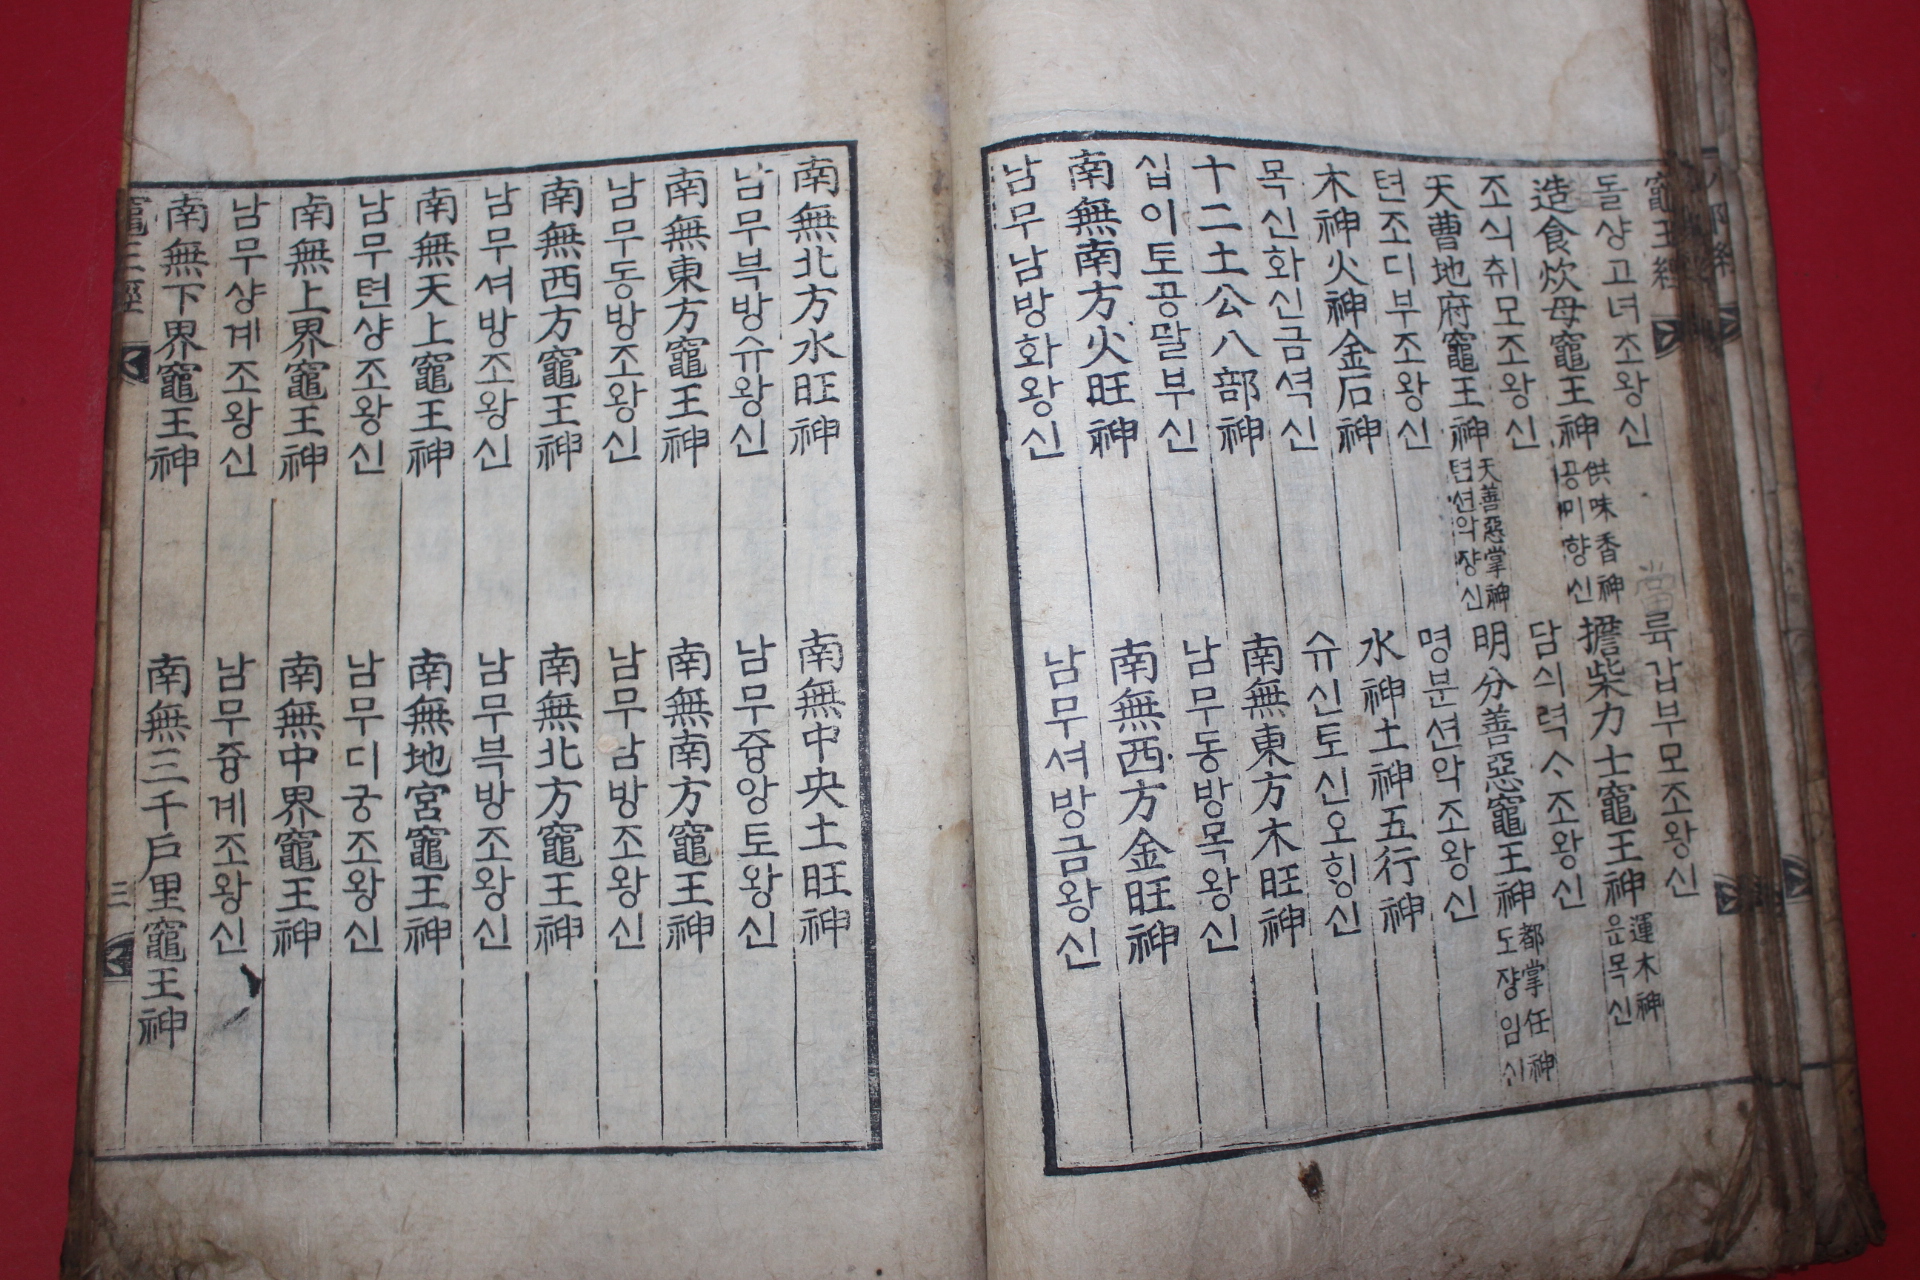 竈王經
돌샹고녀조왕신 륙갑부모조왕신
造食炊母竈王神 供味香神 공미향신 擔柴力士竈王神 運木神 운목신
조식취모조왕신 담싀력ᄉ조왕신
天曹地府竈王神 天善惡掌神 텬션악쟝신 明分善惡竈王神 都掌任神 도쟝임신
텬조디부조왕신 명분션악조왕신
木神火神金石神 水神土神五行神
목신화신금셕신 슈신토신오힝신
十二土公八部神 南無東方木旺神
십이토공말부신 남무동방목왕신
南無南方火旺神 南無西方金旺神
남무남방화왕신 남무셔방금왕신
南無北方水旺神 南無中央土旺神
남무븍방슈왕신 남무즁앙토왕신
南無東方竈王神 南無南方竈王神
남무동방조왕신 남무남방조왕신
南無西方竈王神 南無北方竈王神
남무셔방조왕신 남무븍방조왕신
南無天上竈王神 南無地宮竈王神
남무텬샹조왕신 남무디궁조왕신
南無上界竈王神 南無中界竈王神
남무샹계조왕신 남무즁계조왕신
南無下界竈王神 南無三千戶里竈王神
竈王經 三